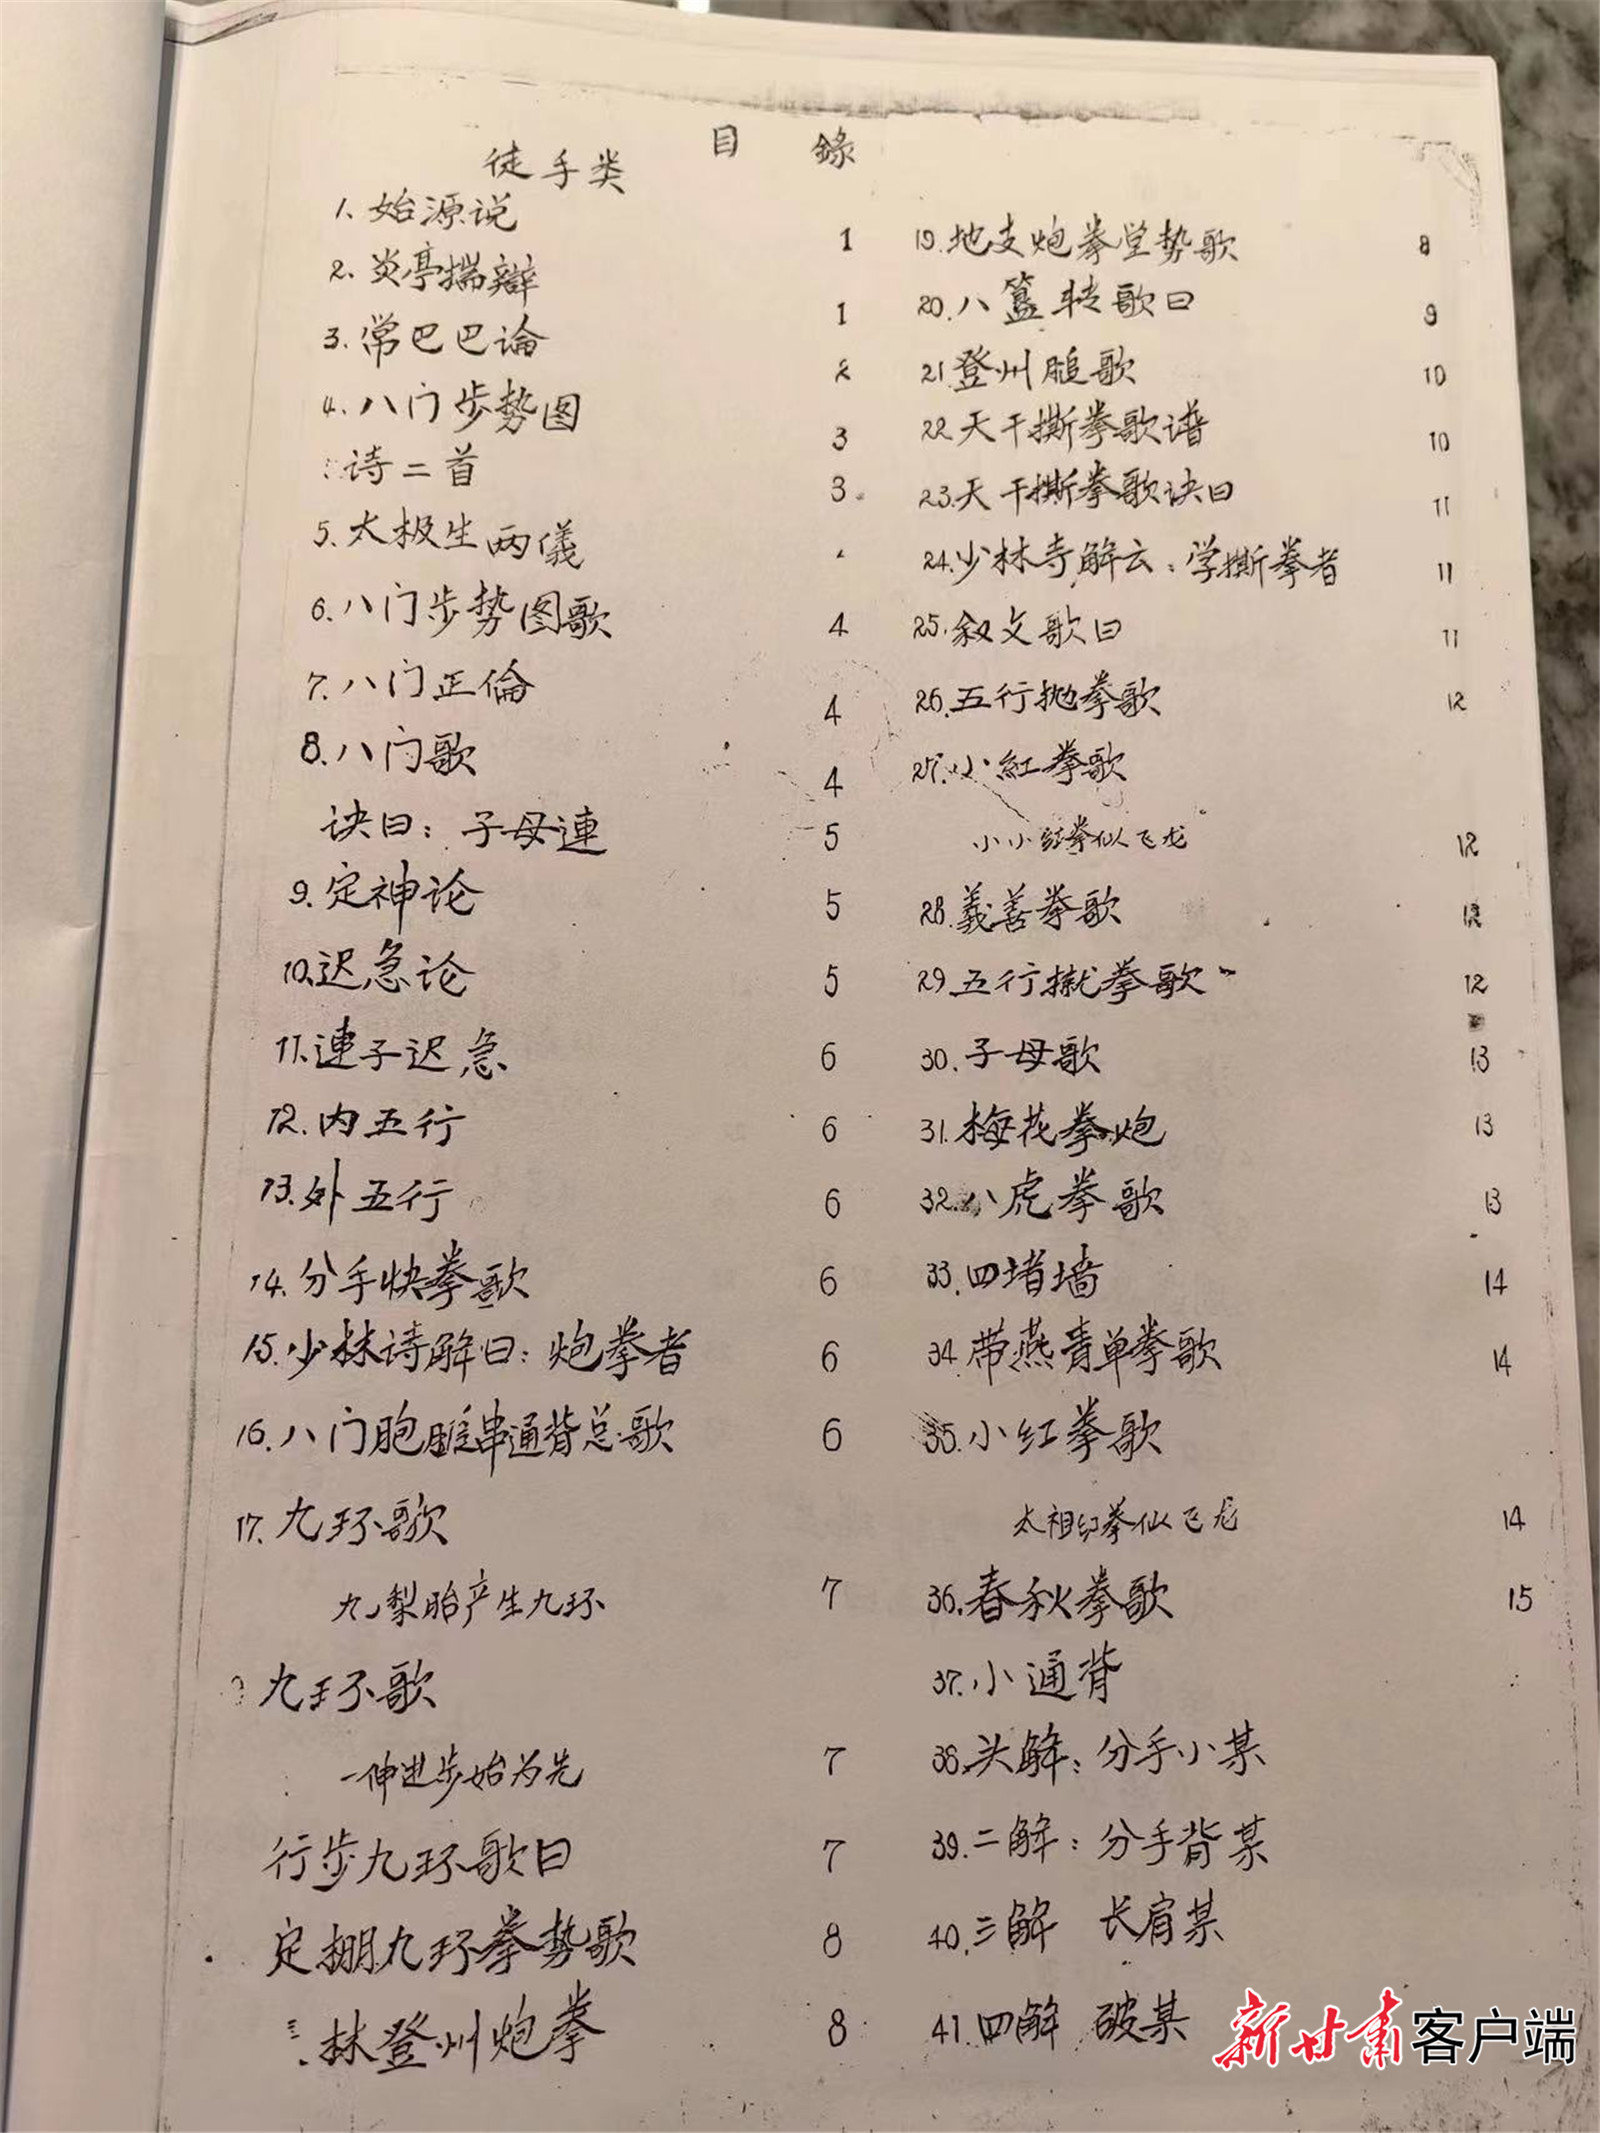 目 錄
徒手类
1. 始源说 1
2. 炎亭揣辩 1
3. 常巴巴论 2
4. 八门步势图 3
诗二首 3
5. 太极生两儀
6. 八门步势图歌 4
7. 八门正倫 4
8. 八门歌 4
诀曰：子母連 5
9. 定神论 5
10. 迟急论 5
11. 連子迟急 6
12. 内五行 6
13. 外五行 6
14. 分手快拳歌 6
15. 少林诗解曰：炮拳者 6
16. 八门胞腿串通背总歌 6
17. 九环歌
九梨胎产生九环 7
九环歌
一伸进步始为先 7
行步九环歌曰 7
定掤九环拳势歌 8
林登州炮拳 8
19. 地支炮拳堂势歌 8
20. 八簋转歌曰 9
21 登州膇歌 10
22. 天干撕拳歌谱 10
23. 天干撕拳歌诀曰 11
24. 少林寺解云：学撕拳者 11
25. 叙文歌曰 11
26. 五行抛拳歌 12
27. 小紅拳歌
小小红拳似飞龙 12
28. 義善拳歌 12
29. 五行撳拳歌 12
30. 子母歌 13
31. 梅花拳炮 13
32. 八虎拳歌 13
33. 四堵墙 14
34 带燕青单拳歌 14
35. 小红拳歌
太祖红拳似飞龙 14
36. 春秋拳歌 15
37. 小通背
38. 头解：分手小某
39. 二解：分手背某
40. 三解 长肩某
41. 四解 破某
新甘肃客户端